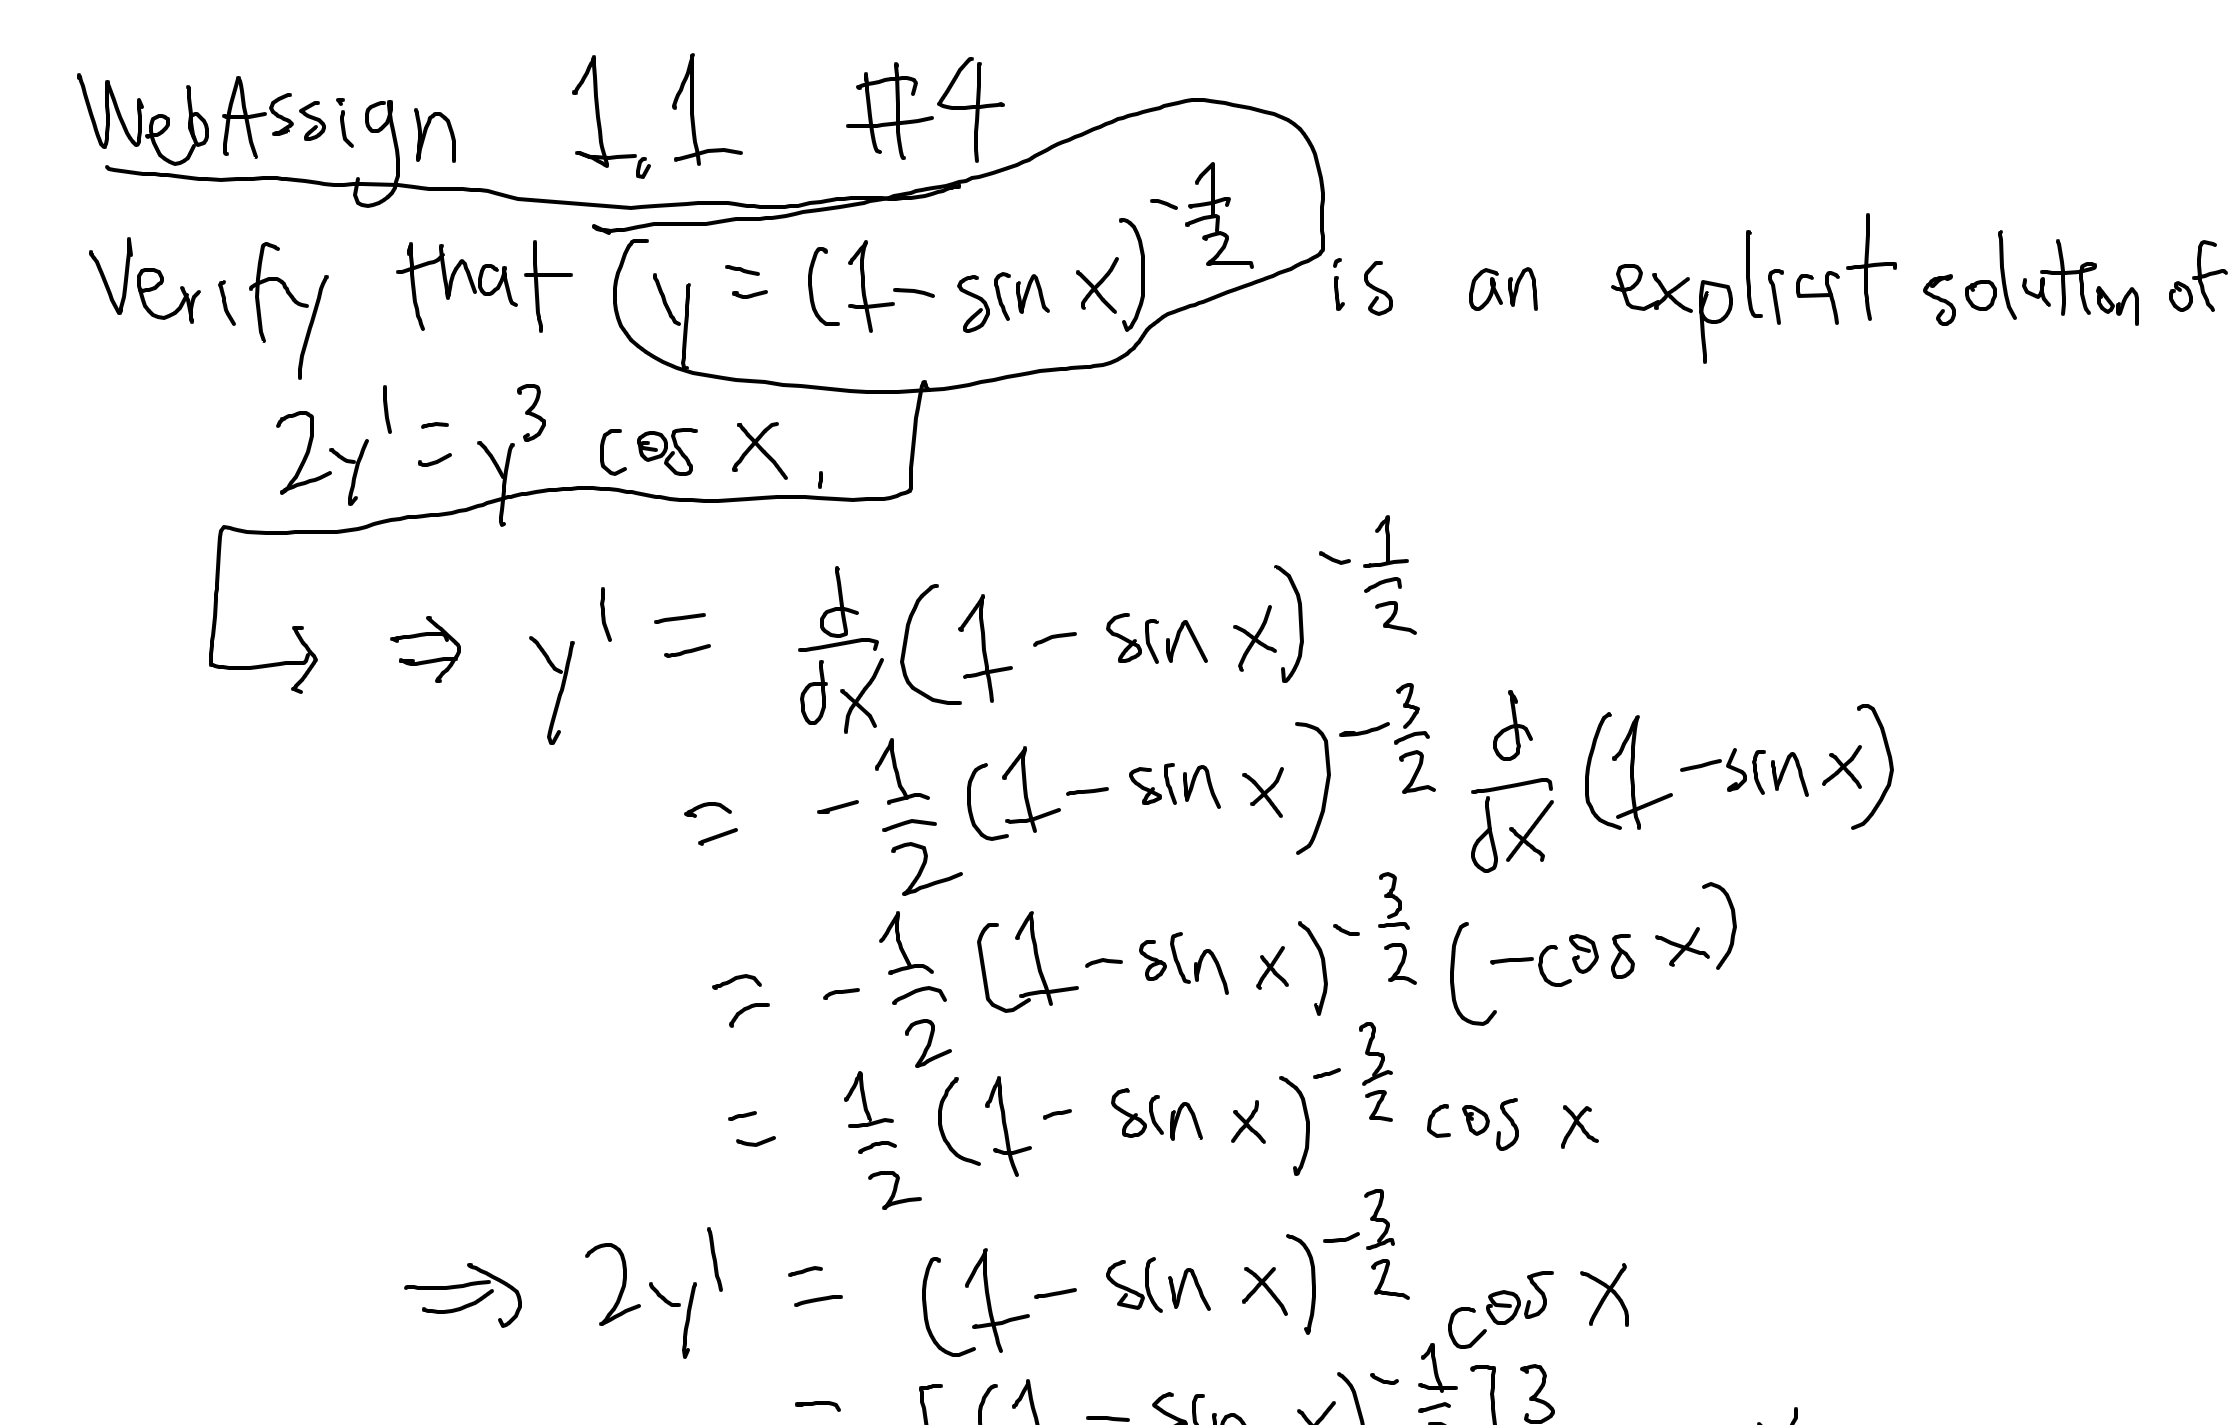 WebAssign 1.1 #4
Verify that y = (1 - sin x)^(-1/2) is an explicit solution of
2y' = y^3 cos x.
⇒ y' = d/dx (1 - sin x)^(-1/2)
= -1/2 (1 - sin x)^(-3/2) d/dx (1 - sin x)
= -1/2 (1 - sin x)^(-3/2) (-cos x)
= 1/2 (1 - sin x)^(-3/2) cos x
⇒ 2y' = (1 - sin x)^(-3/2) cos x
= [(1 - sin x)^(-1/2)]^3